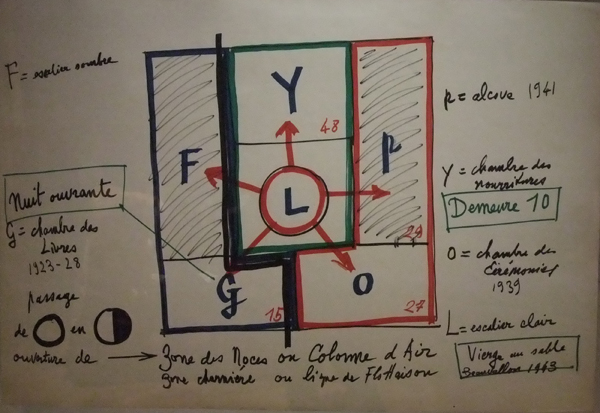 F = escalier sombre
Nuit ouvrante
G = chambre des
Livres
1923-28
passage
de en
ouverture de
Y
48
F
L
p
29
G
15
O
27
p = alcove 1941
Y = chambre des
nourritures
Demeure 10
O = chambre des
Cérémonies
1939
L = escalier clair
Vierge au sable
1943
Zone des Noces ou Colonne d'Air
zone charnière ou ligne de Flottaison